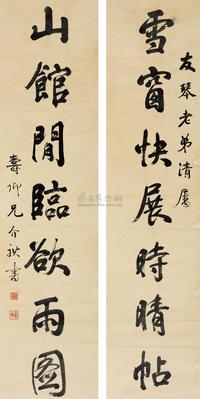 友琴老弟清屬
雪窗快展時晴帖
山館閒臨欲雨圖
壽仰兄介祺書